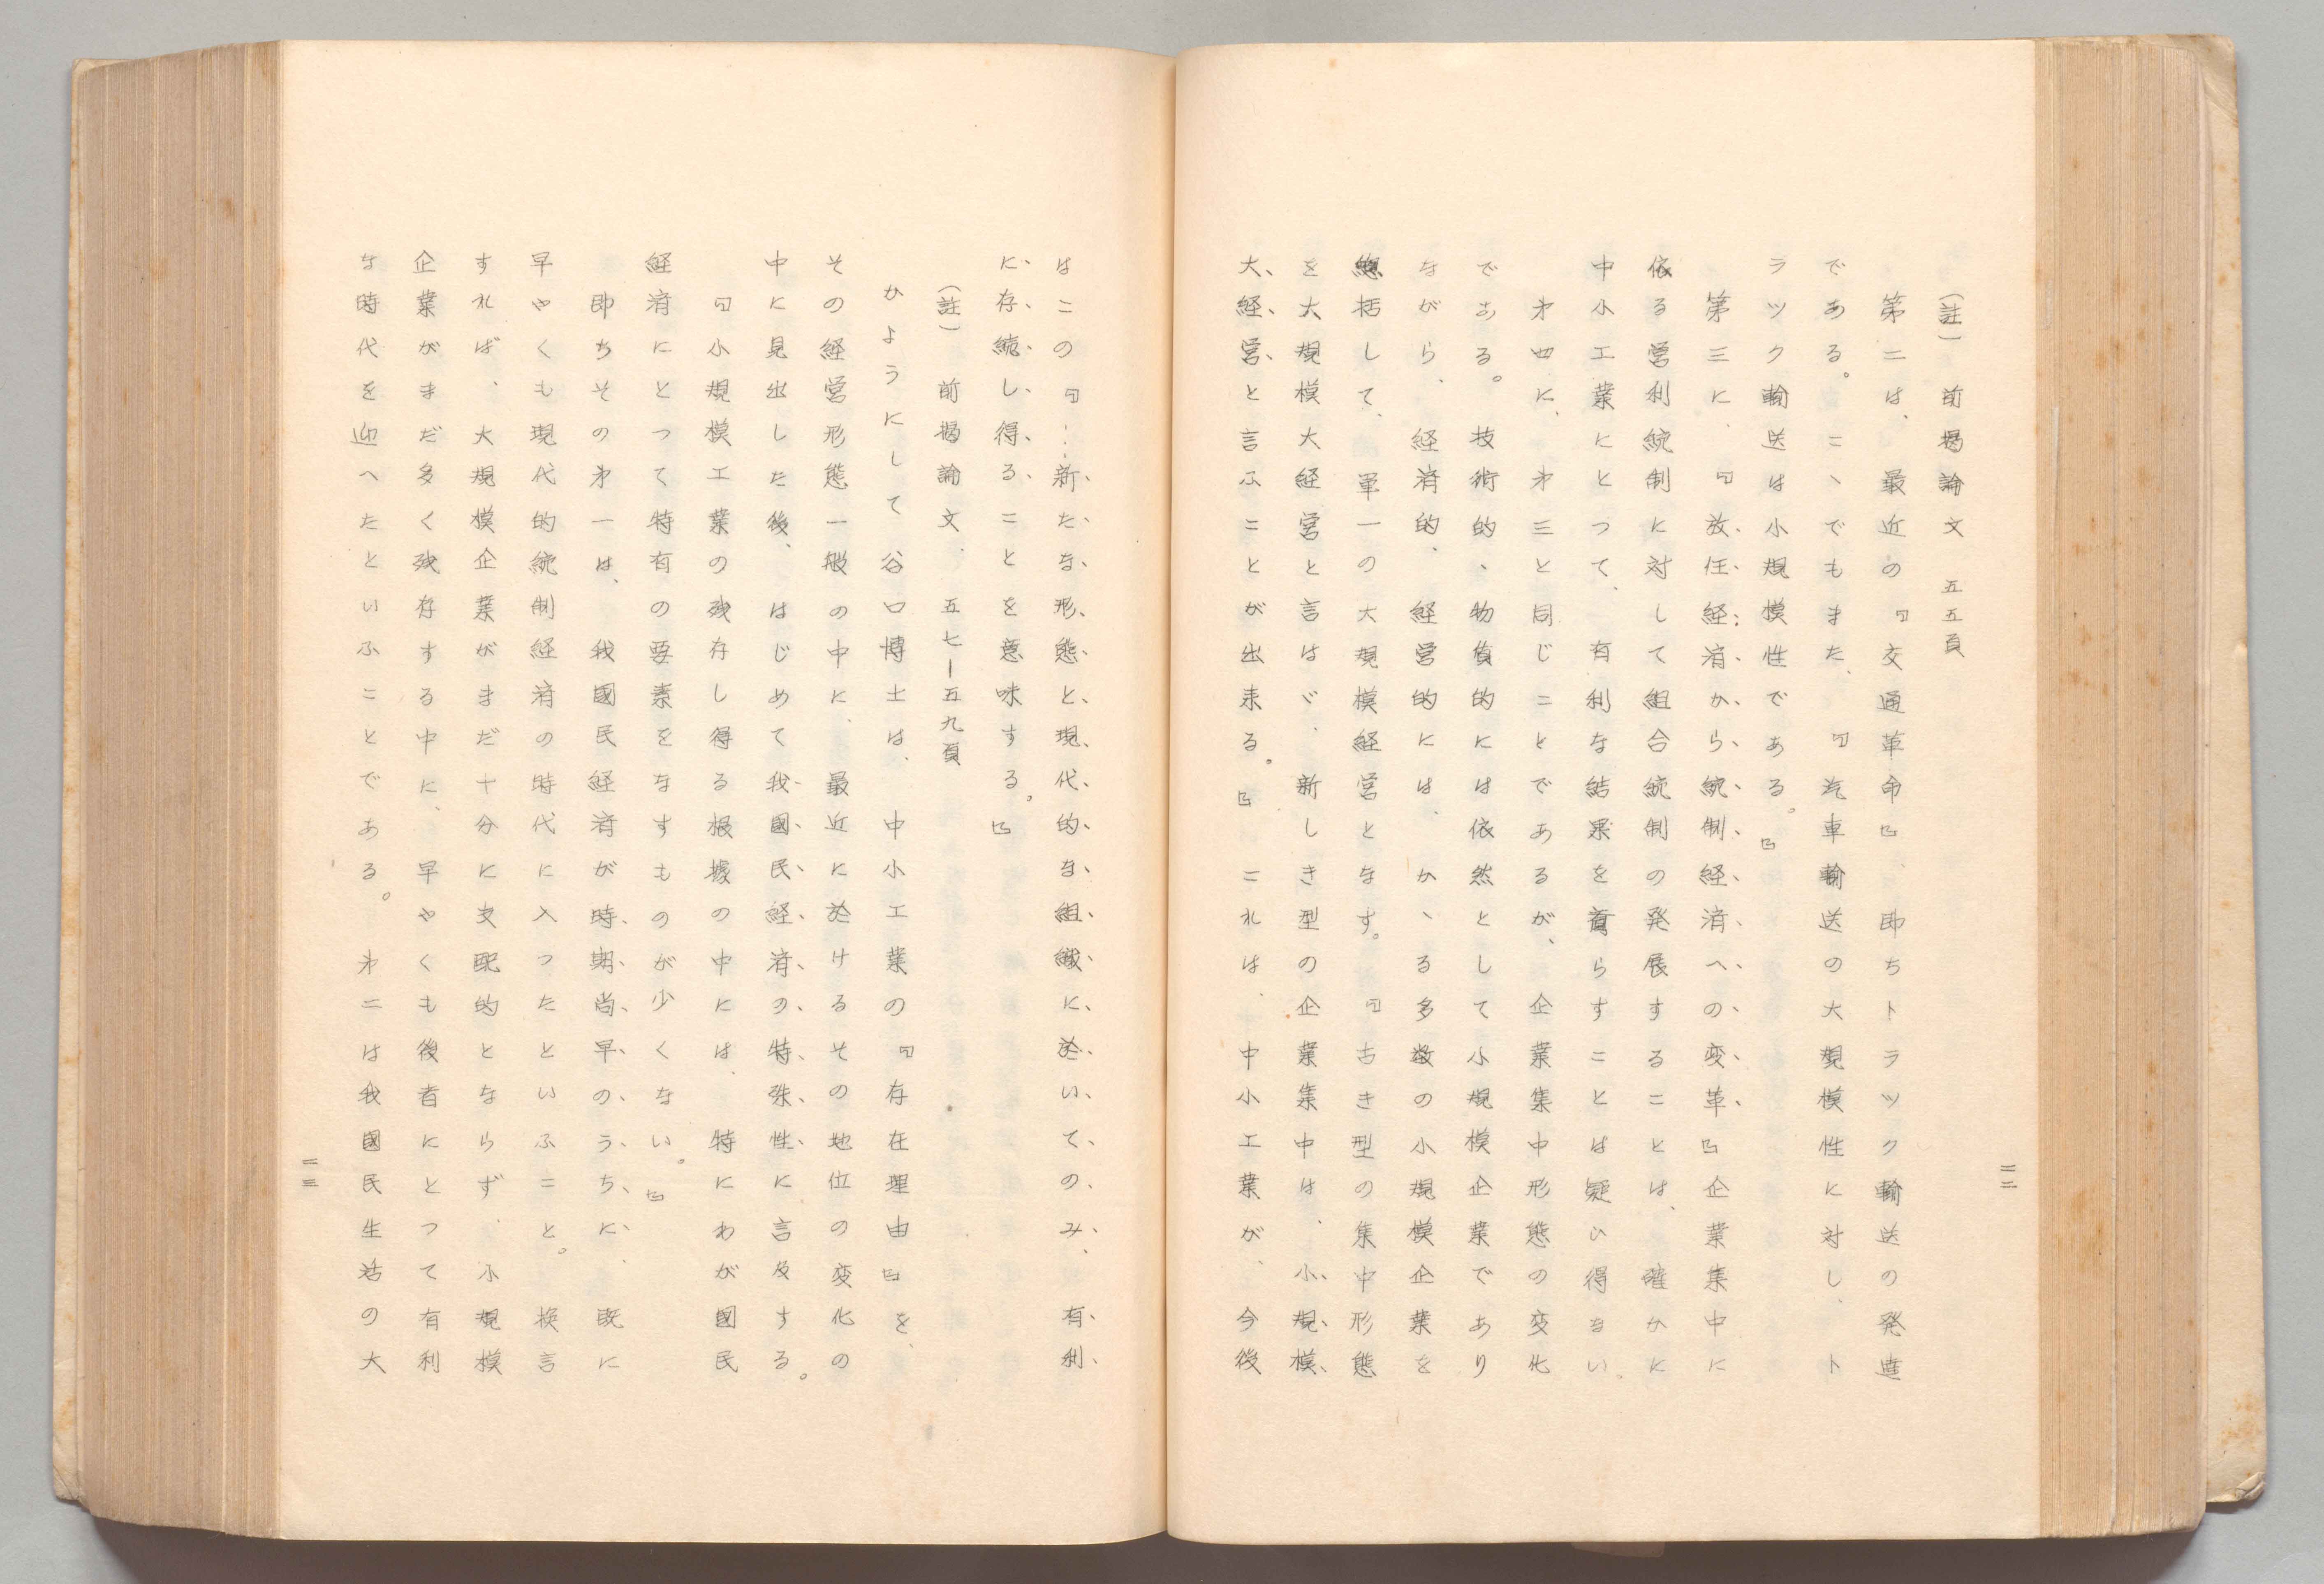 (註) 前揭論文 五五頁
第二は、最近の『交通革命』、即ちトラツク輸送の発達
である。こゝでもまた、『汽車輸送の大規模性に対し、ト
ラツク輸送は小規模性である。』
第三に、『放任経済から統制経済への変革』企業集中に
依る営利統制に対して組合統制の発展することは、確かに
中小工業にとつて、有利な結果を齎らすことは疑ひ得ない。
才四に、才三と同じことであるが、企業集中形態の変化
である。技術的、物質的には依然として小規模企業であり
ながら、経済的、経営的には、かゝる多数の小規模企業を
総括して、単一の大規模経営となす。『古き型の集中形態
を大規模大経営と言はゞ、新しき型の企業集中は、小規模
大経営と言ふことが出来る。』これは、中小工業が、今後
二二
はこの『…新たな形態と現代的な組織に於いてのみ、有利
に存続し得ることを意味する。』
(註) 前揭論文、五七ー五九頁
かようにして谷口博士は、中小工業の『存在理由』を、
その経営形態一般の中に、最近に於けるその地位の変化の
中に見出した後、はじめて我國民経済の特殊性に言及する。
『小規模工業の残存し得る根據の中には、特にわが國民
経済にとつて特有の要素をなすものが少くない。』
即ちその才一は、我國民経済が時期尚早のうちに、既に
早やくも現代的統制経済の時代に入つたといふこと。換言
すれば、大規模企業がまだ十分に支配的とならず、小規模
企業がまだ多く残存する中に、早やくも後者にとつて有利
な時代を迎へたといふことである。才二は我國民生活の大
二三